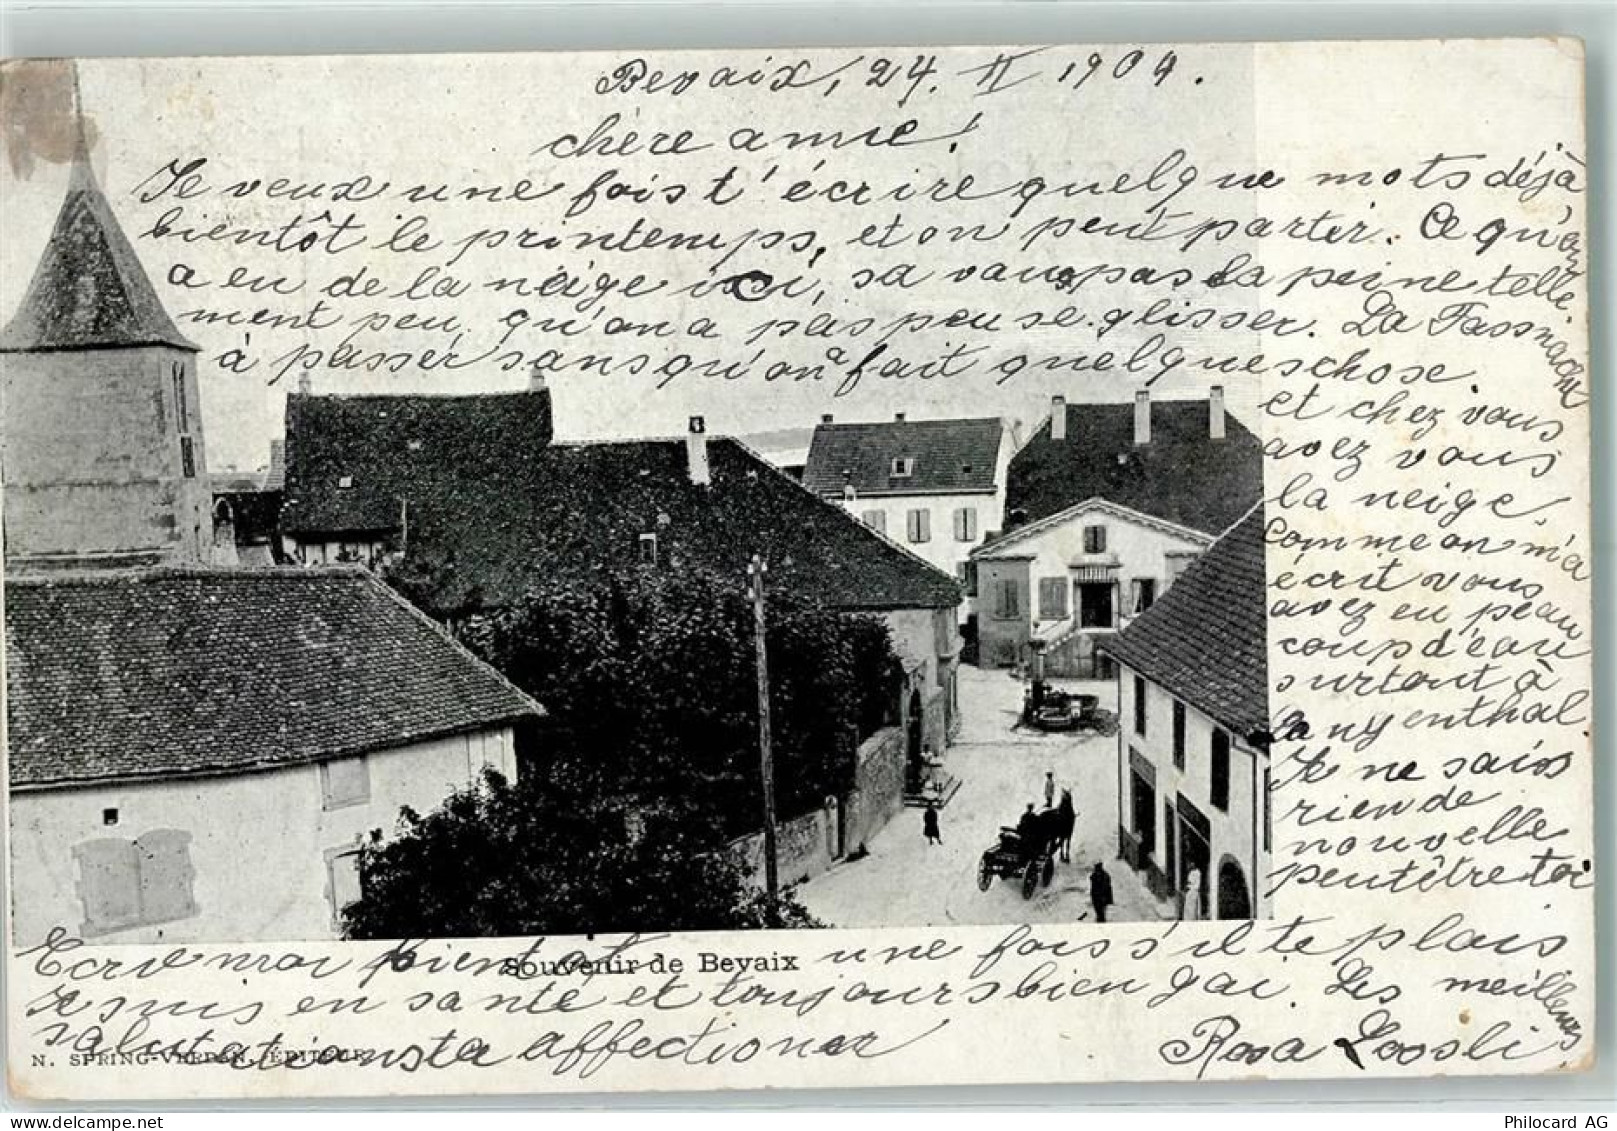 Bevaix, 24. II 1904.
chère amie!
Je veux une fois t'écrire quelque mots déjà,
bientôt le printemps, et on peut partir. Ce qu'on
a eu de la néige ici, sa vau pas la peine telle.
ment peu, qu'on a pas peu se glisser. La Fassnacht
à passér sans qu'on a fait quelques chose.
et chez vous
avez vous
la neige,
comme on m'a
écrit vous
avez eu peau
coup d'éau
surtout à
langenthal
Je ne sais
rien de
nouvelle
peutêtre toi
Ecrie moi bientôt une fois s'il te plais
Souvenir de Bevaix
Je suis en santé et toujours bien gai. Les meilleures
salutations ta affectioner
N. SPRING-VERDAN, ÉDITEUR
Rosa Loosli
Philocard AG